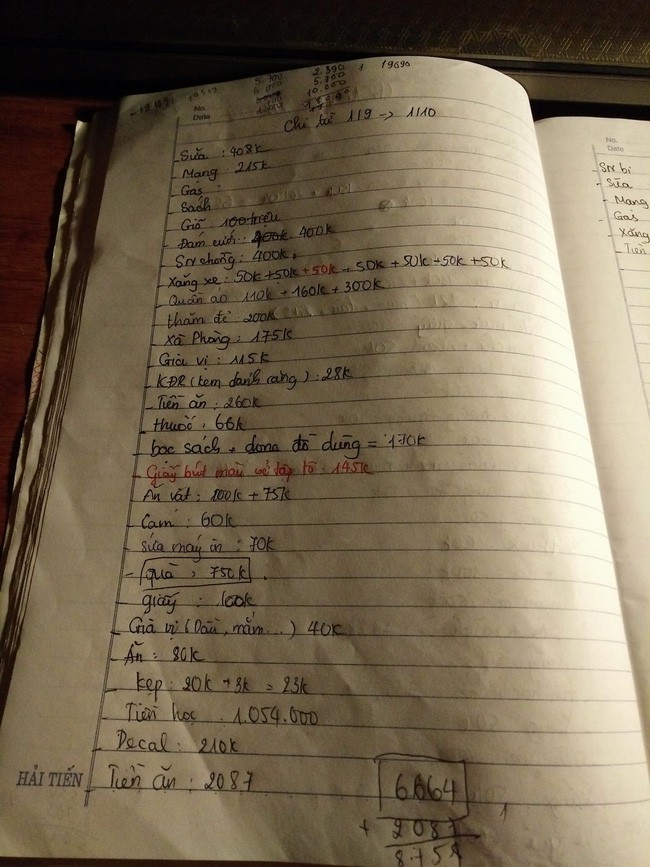 5.700 2.390 1 19690
6.000 5.700
10.000
No.
Date
Chi từ 119 -> 1110
Sữa : 408k
Mạng : 215k
Gas :
Sách
Giỗ 100 triệu
Đám cưới : 400k
SN chồng : 400k
Xăng xe : 50k + 50k + 50k + 50k + 50k + 50k + 50k
Quần áo 110k + 160k + 300k
thăm đẻ 200k
Xà Phòng : 175k
Gia vị : 115k
KĐR (kem đánh răng) : 28k
Tiền ăn : 260k
thuốc : 66k
bọc sách + dụng đồ dùng = 170k
Giấy bút màu vẽ tập tô 145k
Ăn vặt : 100k + 75k
Cam : 60k
sửa máy in : 70k
- quà : 750k
giấy : 160k
Gia vị (Dầu, mắm...) 40k
Ăn : 80k
kẹp : 20k + 3k = 23k
Tiền học : 1.054.000
Decal : 210k
Tiền ăn : 2087
HẢI TIẾN
6664
+ 2087
8.751
No.
Date
SN bi
- Sữa
- Mạng
- Gas
- Xăng
- Tiền